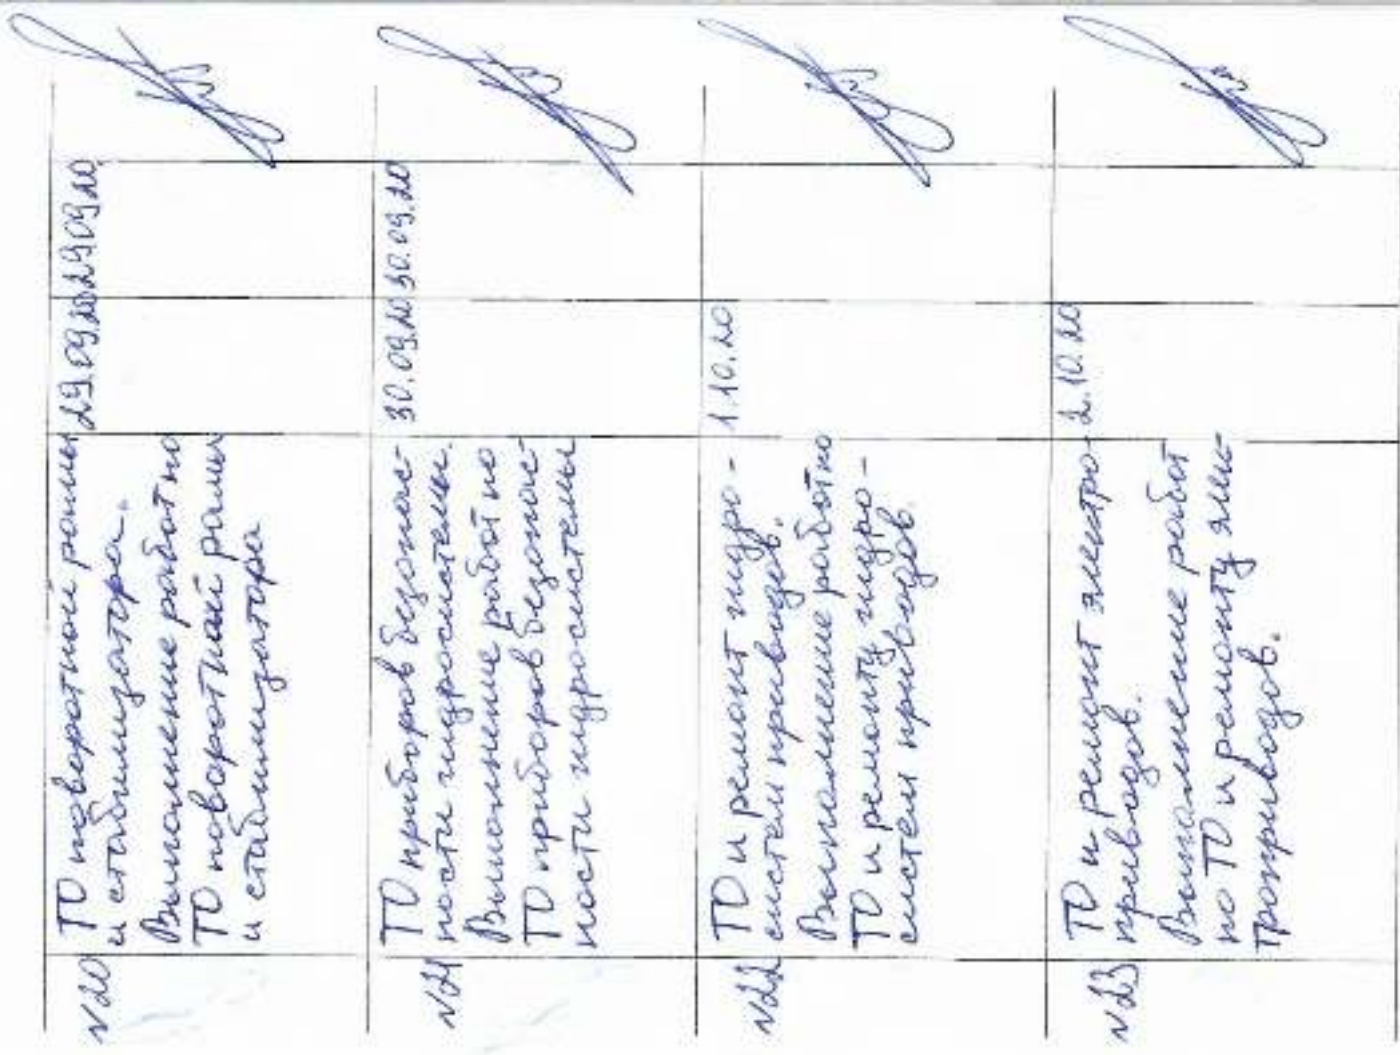 N20
ТО поворотной рамы
и стабилизатора.
Выполнение работ по
ТО поворотной рамы
и стабилизатора
29.09.20
29.09.20
N21
ТО приборов безопас-
ности гидросистемы.
Выполнение работ по
ТО приборов безопас-
ности гидросистемы
30.09.20
30.09.20
N22
ТО и ремонт гидро-
систем приводов.
Выполнение работ по
ТО и ремонту гидро-
систем приводов.
1.10.20
N23
ТО и ремонт электро-
приводов.
Выполнение работ
по ТО и ремонту элек-
троприводов.
2.10.20